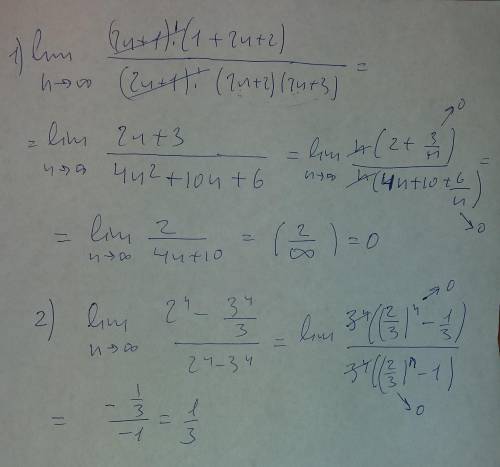 1) lim n→∞ ((2n+1)!(1+2n+2))/((2n+1)!(2n+2)(2n+3)) =
= lim n→∞ (2n+3)/(4n²+10n+6) = lim n→∞ (n(2+3/n))/(n(4n+10+6/n)) = →0 →0
= lim n→∞ 2/(4n+10) = (2/∞) = 0
2) lim n→∞ (2ⁿ - 3ⁿ/3)/(2ⁿ-3ⁿ) = lim (3ⁿ((2/3)ⁿ - 1/3))/(3ⁿ((2/3)ⁿ - 1)) →0 →0
= (-1/3)/(-1) = 1/3